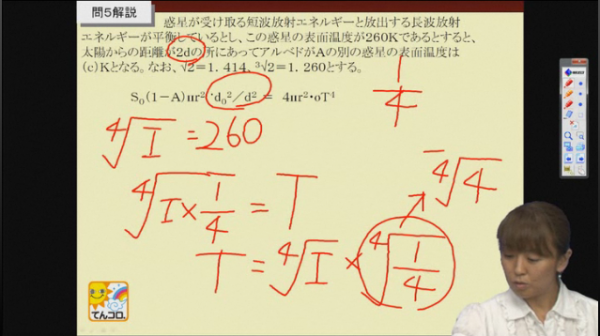 問5解説
惑星が受け取る短波放射エネルギーと放出する長波放射
エネルギーが平衡しているとし、この惑星の表面温度が260Kであるとすると、
太陽からの距離が2dの所にあってアルベドがAの別の惑星の表面温度は
(c)Kとなる。なお、√2=1.414,³√2=1.260とする。
S₀(1-A)πr²・d₀²/d² = 4πr²・σT⁴
1/4
⁴√I =260
⁴√4
⁴√I×1/4 = T
T = ⁴√I × ⁴√1/4
てんコロ.